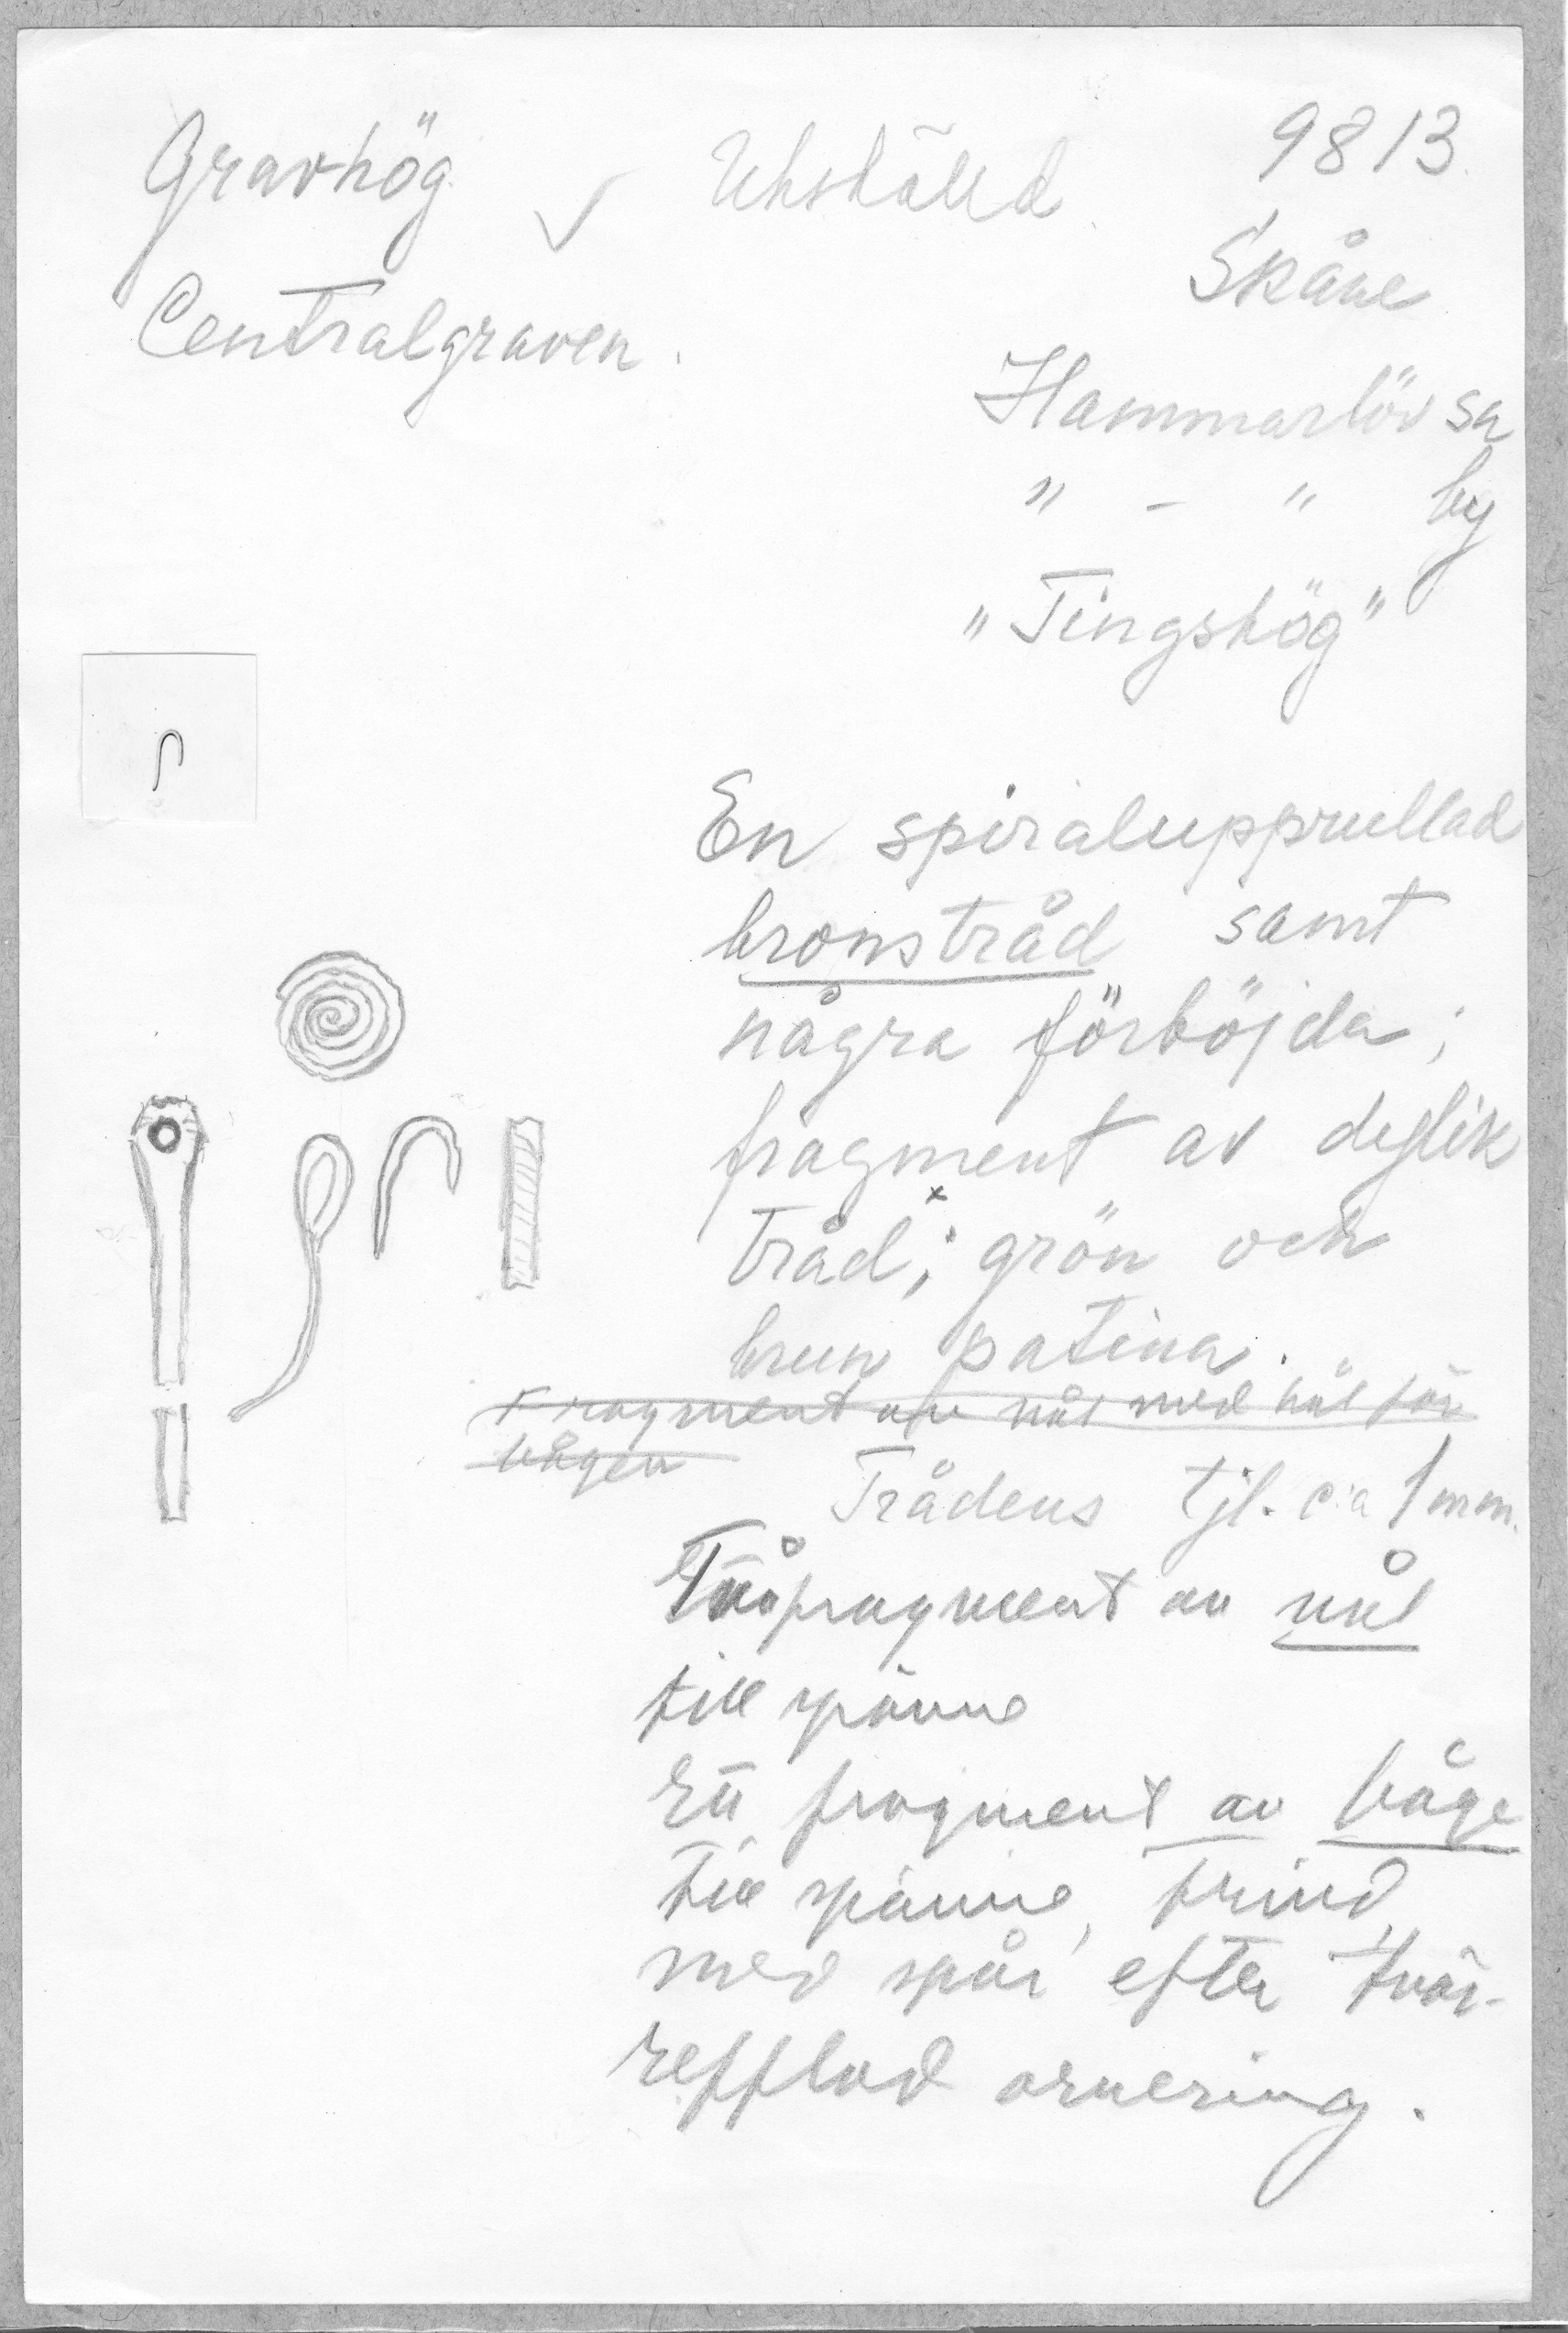 Gravhög
Utställd
9813
Centralgraven.
Skåne
Hammarlöv sn
" - " by
"Tingshög"
En spiralupprullad
bronstråd samt
några förböjda;
fragment av dylik
tråd; grön och
brun patina.
Fragment av nål med hål för
bågen
Trådens tjl. c:a 1 mm.
Två fragment av nål
till spänne
Ett fragment av båge
till spänne, trind,
med spår efter tvär-
refflad ornering.